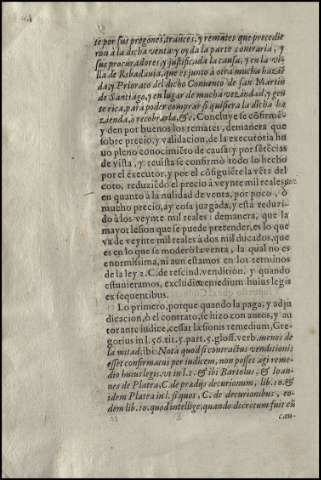 te por sus pregones, trances, y remates que precedie
ron à la dicha venta: y oy da la parte contraria, y
sus procuradores, y justificada la causa, y en la vi-
lla de Ribadauia, que es junto à otra mucha hazié
da, y Priorato del dicho Conuento de san Martin
de Santiago, y en lugar de mucha vezindad, y gen
te rica, para poder comprar si quisiera la dicha ha
zienda, ò recobrarla, &c. Concluye se cõfirmé
y den por buenos los remates, demanera que
sobre precio, y validacion, de la executoria hu
uo pleno conocimiéto de causa: y por sétécias
de vista, y reuista se confirmò todo lo hecho
por el executor, y por el cõsiguiéte la véta del
coto, reduziédo el precio à veynte mil reales
en quanto à la nulidad de venta, por poco, ò
mucho precio, ay cosa juzgada, y està reduzi-
do à los veynte mil reales: demanera, que la
mayor lesion que se puede pretender, es lo que
va de veynte mil reales à dos mil ducados, que
es en lo que se moderò la venta, la qual no es
enormissima, ni aun estamos en los terminos
de la ley 2. C. de rescind. vendition. y quando
estuuieramos, excluditur remedium huius legis
ex sequentibus.
Lo primero, porque quando la paga, y adju
dicacion, ò el contrato, se hizo con autos, y au
torante iudice, cessat læsionis remedium, Gre-
gorius in l. 56. tit. 5. part. 5. gloss. verb. menos de
la mitad, ibi: Nota quod si contractus venditionis
esset confirmatus per iudicem, non posset agi reme-
dio huius legis, vt in l. 2. & ibi Bartolus, & Ioan-
nes de Platea, C. de prædijs decurionum, lib. 10. &
idem Platea in l. si quos, C. de decurionibus, eo-
dem lib. 10. quod intellige, quando decretum fuit cū
cau-